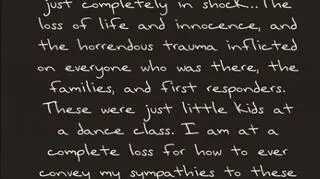 just completely in shock...The
loss of life and innocence, and
the horrendous trauma inflicted
on everyone who was there, the
families, and first responders.
These were just little kids at
a dance class. I am at a
complete loss for how to ever
convey my sympathies to these